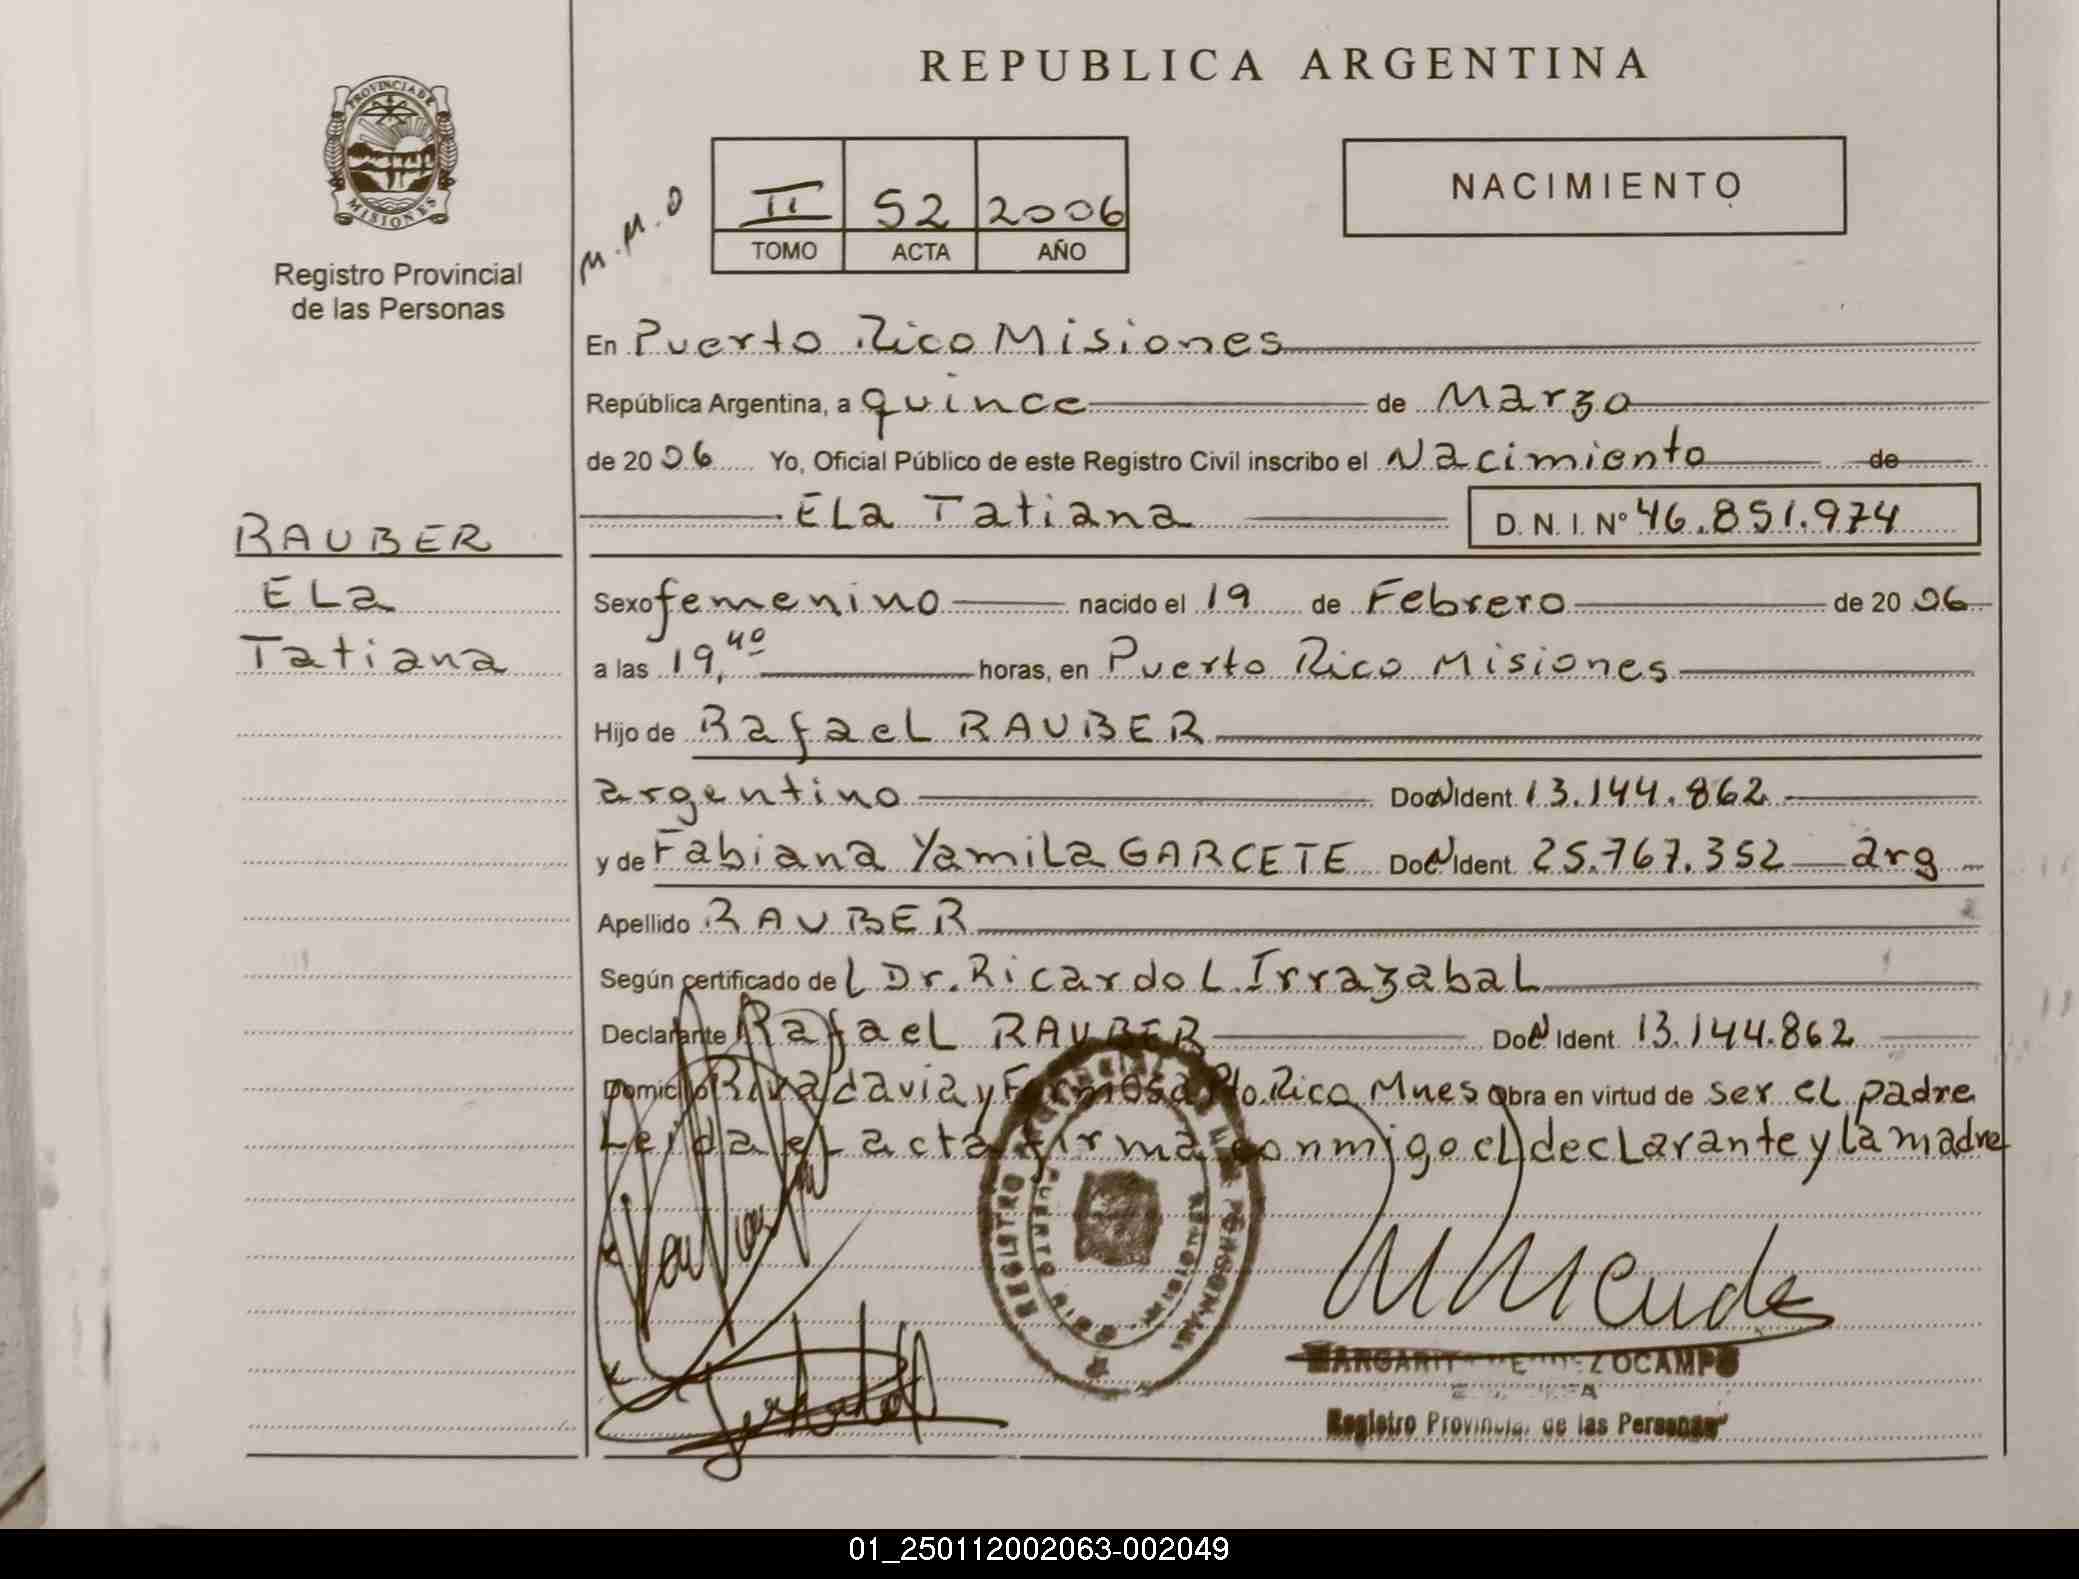 REPUBLICA ARGENTINA
PROVINCIA DE
MISIONES
Registro Provincial
de las Personas
M.M.O
II 52 2006
TOMO ACTA AÑO
NACIMIENTO
En Puerto Rico Misiones
República Argentina, a quince de Marzo
de 2006 Yo, Oficial Público de este Registro Civil inscribo el Nacimiento de
Ela Tatiana D. N. I. Nº 46.851.974
RAUBER
Ela
Tatiana
Sexo femenino nacido el 19 de Febrero de 2006
a las 19,40 horas, en Puerto Rico Misiones
Hijo de Rafael RAUBER
argentino Doc N Ident. 13.144.862
y de Fabiana Yamila GARCETE Doc N Ident. 25.767.352 arg
Apellido RAUBER
Según certificado del Dr. Ricardo L. Irrazabal
Declarante Rafael RAUBER Doc N Ident. 13.144.862
Domicilio Rivadavia y Formosa Pto. Rico Mnes obra en virtud de ser el padre
Leida el acta firma conmigo el declarante y la madre
REGISTRO PROVINCIAL DE LAS PERSONAS
PUERTO RICO MISIONES
OCAMPO
Registro Provincial de las Personas
01_250112002063-002049